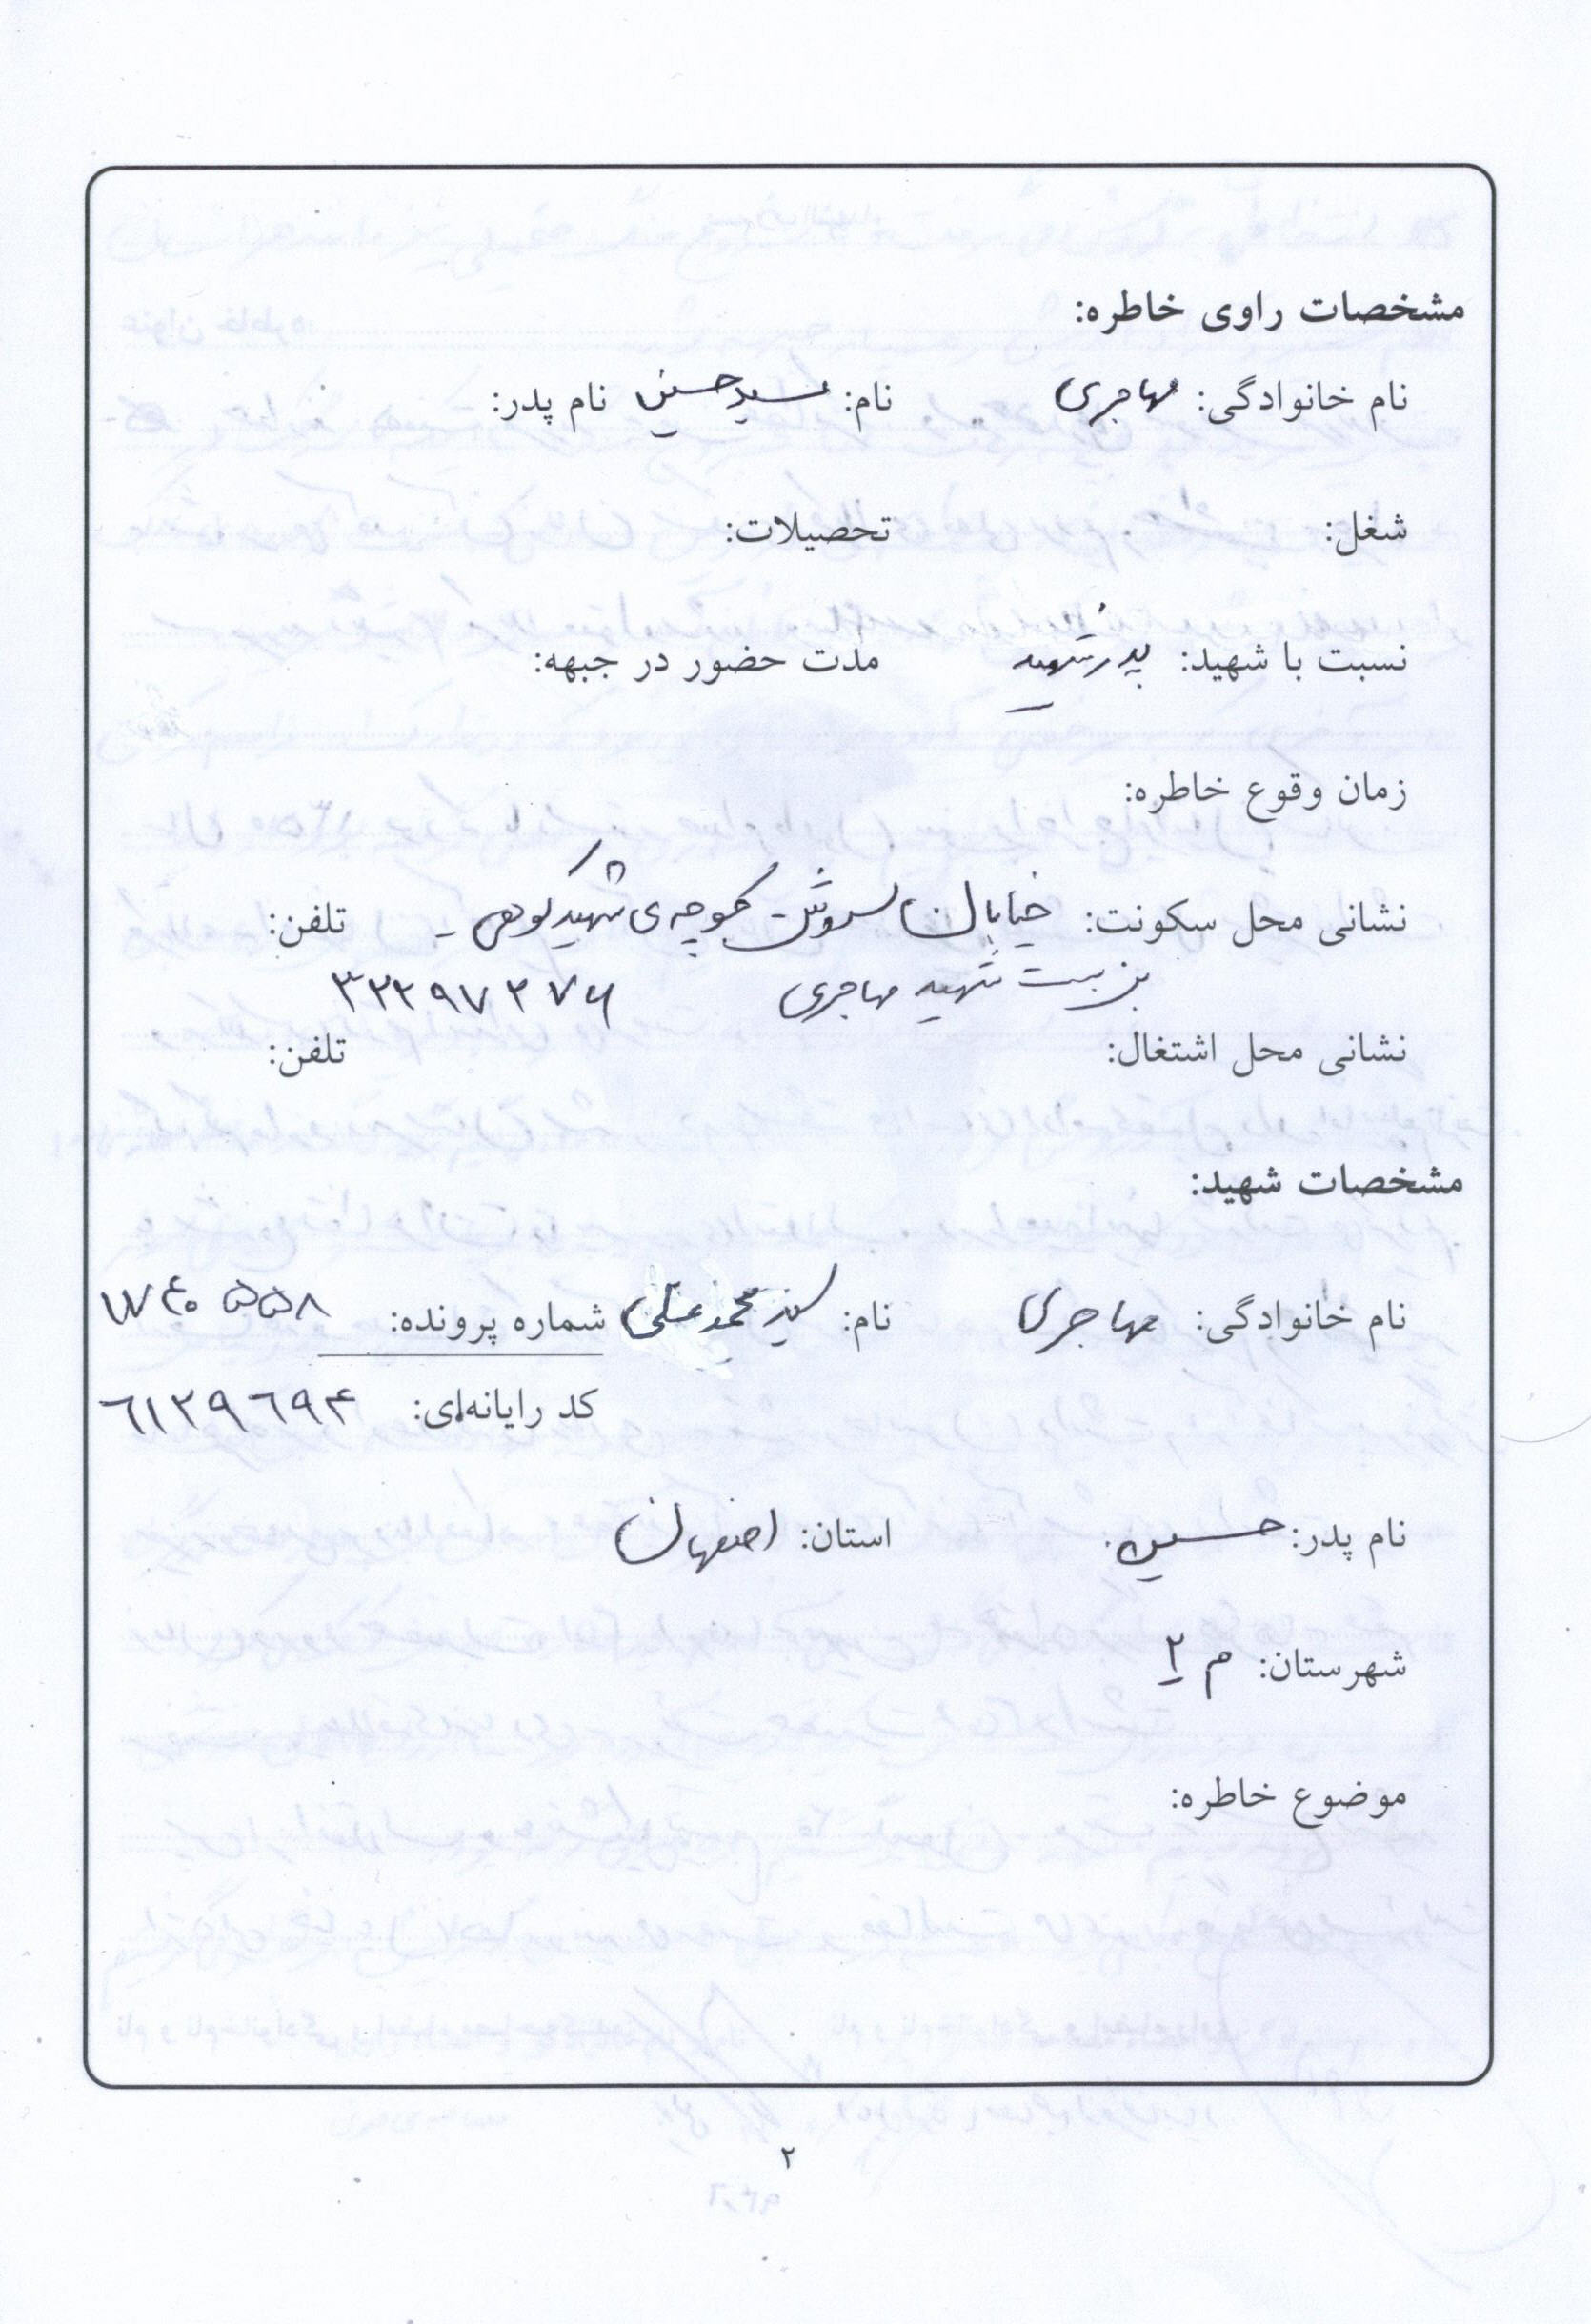 مشخصات راوی خاطره:
نام خانوادگی: مهاجری نام: سیدحسین نام پدر:
شغل: تحصیلات:
نسبت با شهید: پدر شهید مدت حضور در جبهه:
زمان وقوع خاطره:
نشانی محل سکونت: خیابان سروش - کوچه‌ی شهید گوهری - تلفن:
بن بست شهید مهاجری ۳۲۲۹۷۲۷۶
نشانی محل اشتغال: تلفن:
مشخصات شهید:
نام خانوادگی: مهاجری نام: سید محمدعلی شماره پرونده:
کد رایانه‌ای: ۶۱۲۹۶۹۴
نام پدر: حسین استان: اصفهان
شهرستان: م ۲
موضوع خاطره:
۲